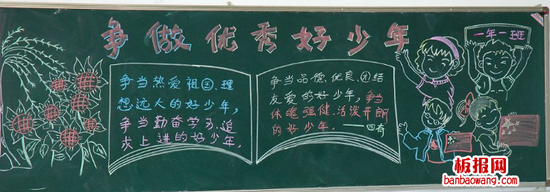 争做优秀好少年
一年一班
争当热爱祖国、理
想远大的好少年,
争当勤奋学习、追
求上进的好少年,
争当品德优良、团结
友爱的好少年,争当
体魄强健、活泼开朗
的好少年。——四有
板报网
banbaowang.com